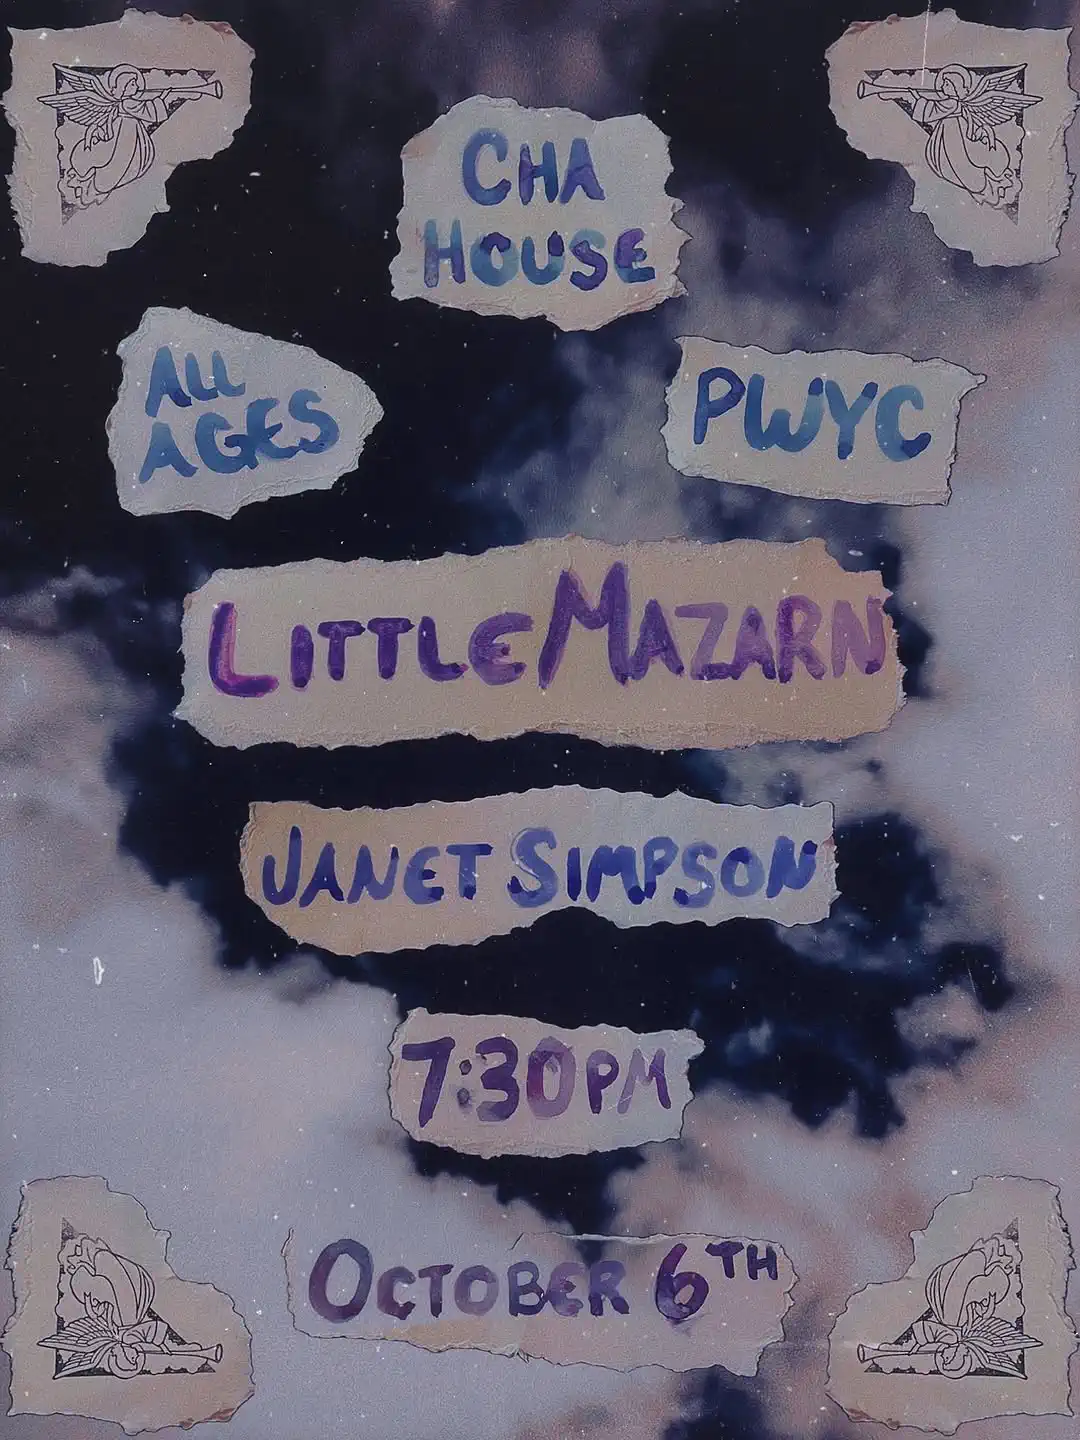 CHA
HOUSE
ALL
AGES
PWYC
LITTLE MAZARN
JANET SIMPSON
7:30PM
OCTOBER 6TH